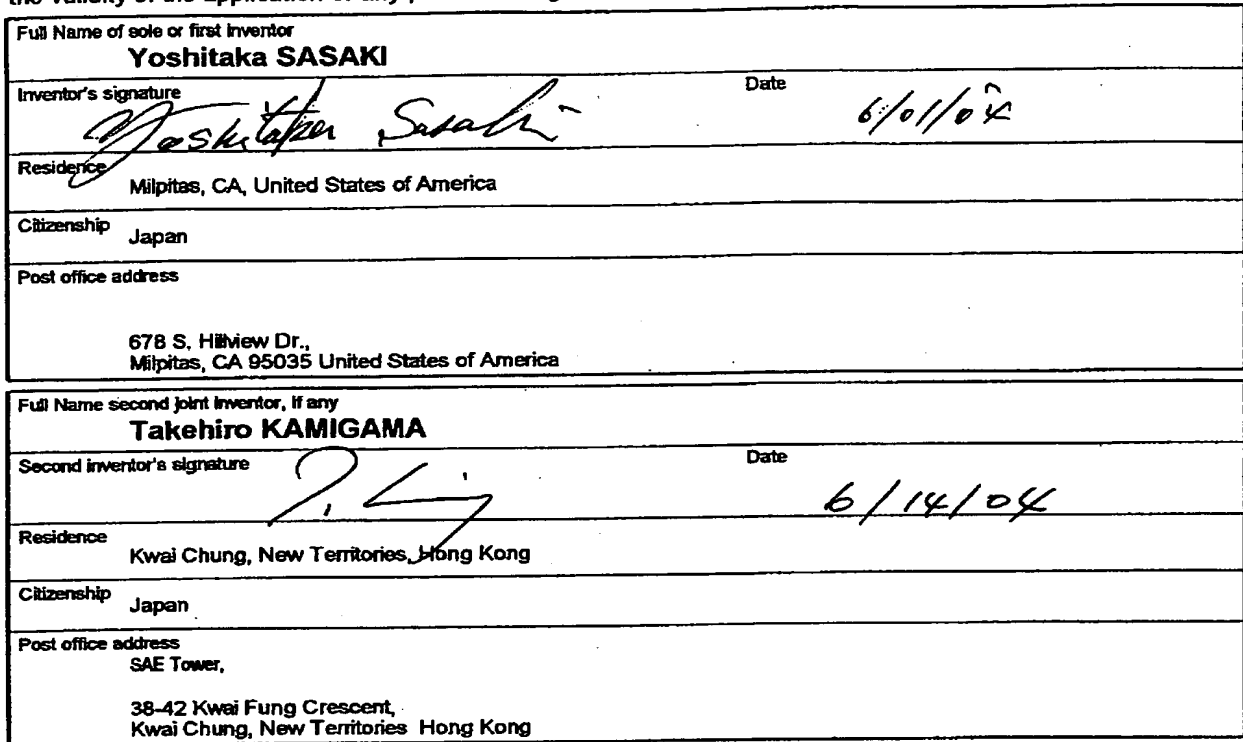 the validity of the application or any
Full Name of sole or first inventor
Yoshitaka SASAKI
Inventor's signature
Date
Yoshitaka Sasaki
6/01/04
Residence
Milpitas, CA, United States of America
Citizenship
Japan
Post office address
678 S. Hillview Dr.,
Milpitas, CA 95035 United States of America
Full Name second joint inventor, if any
Takehiro KAMIGAMA
Second inventor's signature
Date
6/14/04
Residence
Kwai Chung, New Territories, Hong Kong
Citizenship
Japan
Post office address
SAE Tower,
38-42 Kwai Fung Crescent,
Kwai Chung, New Territories Hong Kong